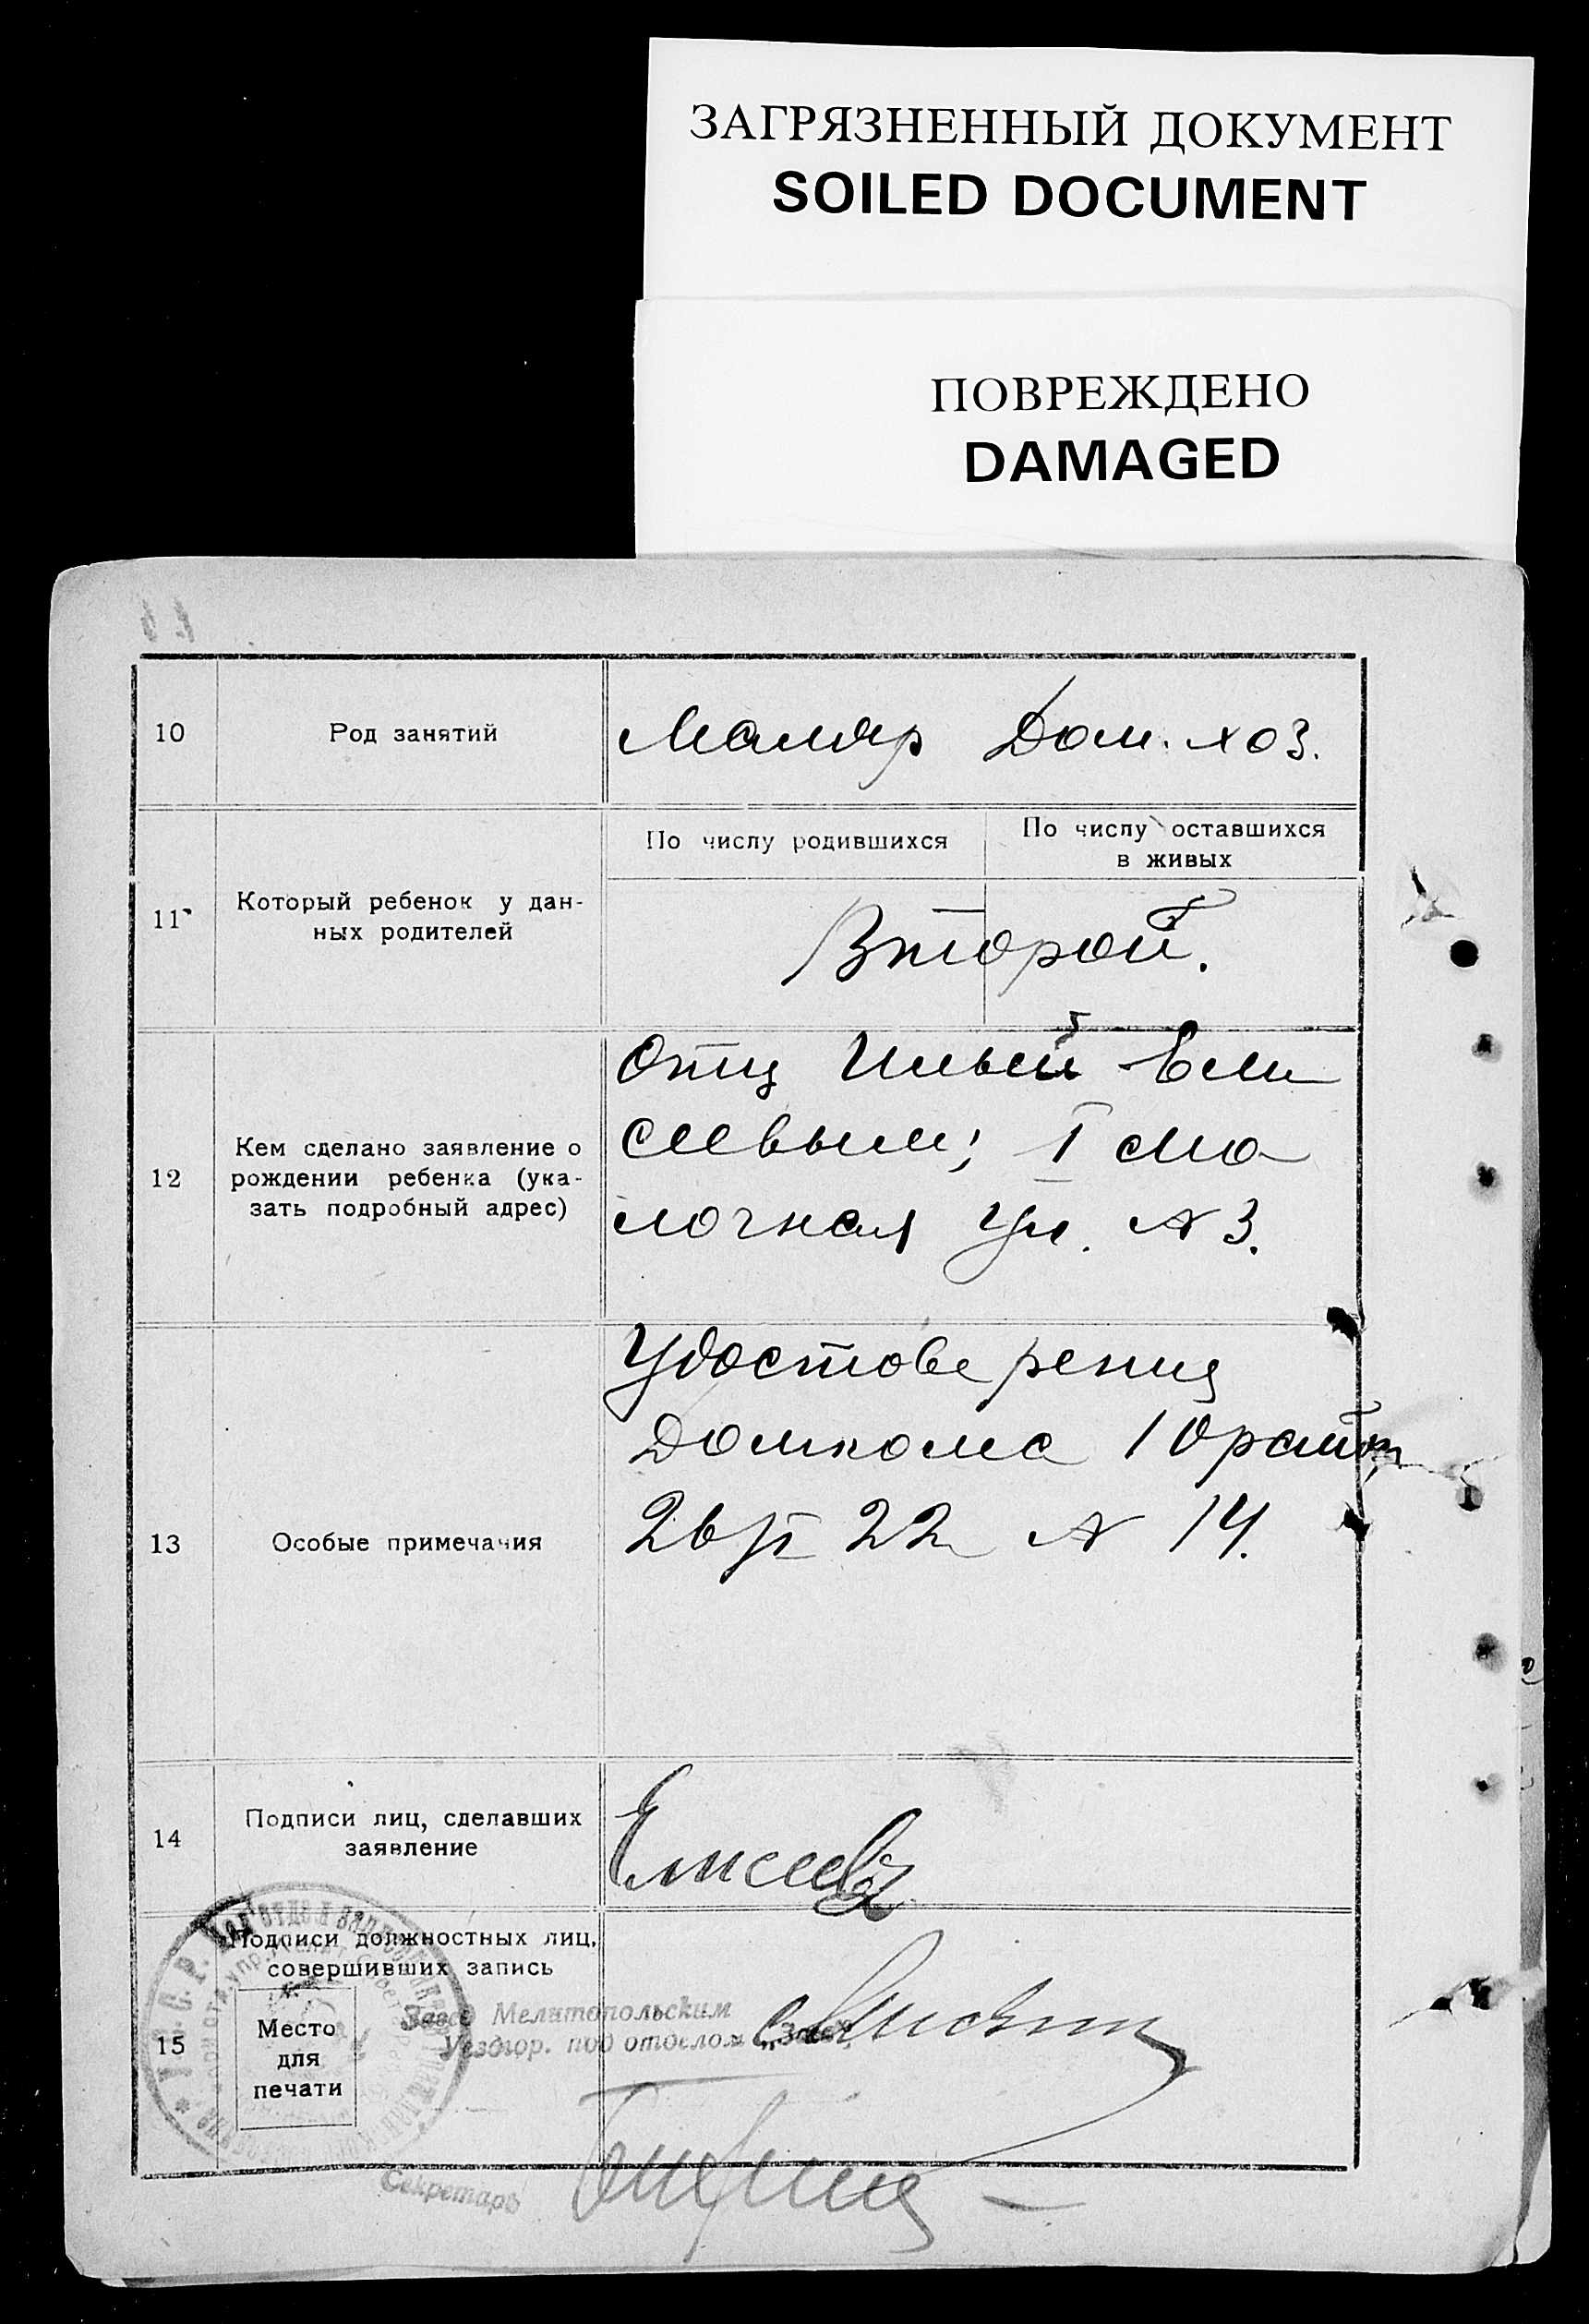 ЗАГРЯЗНЕННЫЙ ДОКУМЕНТ
SOILED DOCUMENT
ПОВРЕЖДЕНО
DAMAGED
10
Род занятий
Маляр Дом. хоз.
11
Который ребенок у дан-
ных родителей
По числу родившихся
По числу оставшихся
в живых
Второй.
12
Кем сделано заявление о
рождении ребенка (ука-
зать подробный адрес)
Отц Ильей Ели
сеевым; I Мо
лочная ул. № 3.
13
Особые примечания
Удостоверения
Домкома 10 район
22 № 14.
14
Подписи лиц, сделавших
заявление
Елисеев
15
Подписи должностных лиц,
совершивших запись
Место
для
печати
Завед Мелитопольским
Уездгор. под отделом
Секретарь